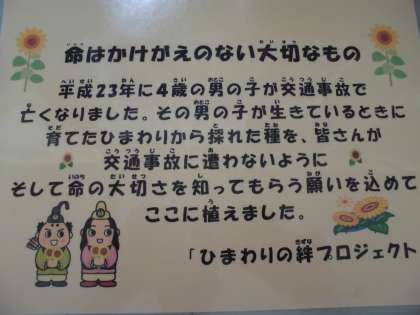 命はかけがえのない大切なもの
平成23年に4歳の男の子が交通事故で
亡くなりました。その男の子が生きているときに
育てたひまわりから採れた種を、皆さんが
交通事故に遭わないように
そして命の大切さを知ってもらう願いを込めて
ここに植えました。
「ひまわりの絆プロジェクト